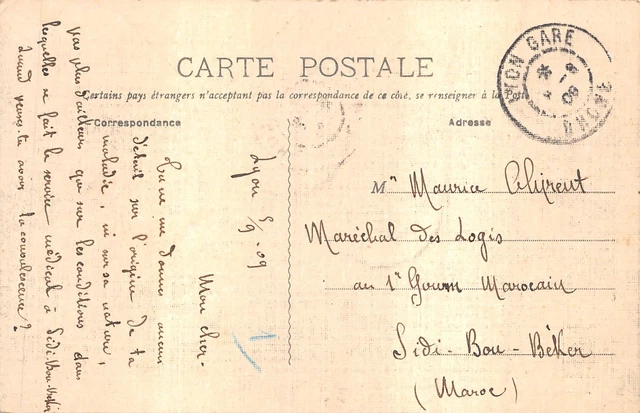 CARTE POSTALE
Certains pays étrangers n'acceptant pas la correspondance de ce côté, se renseigner à la Poste
Correspondance
Adresse
LYON GARE
RHONE
Lyon 5/9-09
Mon cher-
Tu ne me donnes aucun
détail sur l'origine de ta
maladie, ni sur sa nature,
pas plus d'ailleurs que sur les conditions dans
lesquelles se fait le service médical à Sidi-Bou-Béker
Quand penses-tu avoir ta convalescence?
Mr Maurice
Maréchal des Logis
au 1er Goum Marocain
Sidi-Bou-Béker
(Maroc)